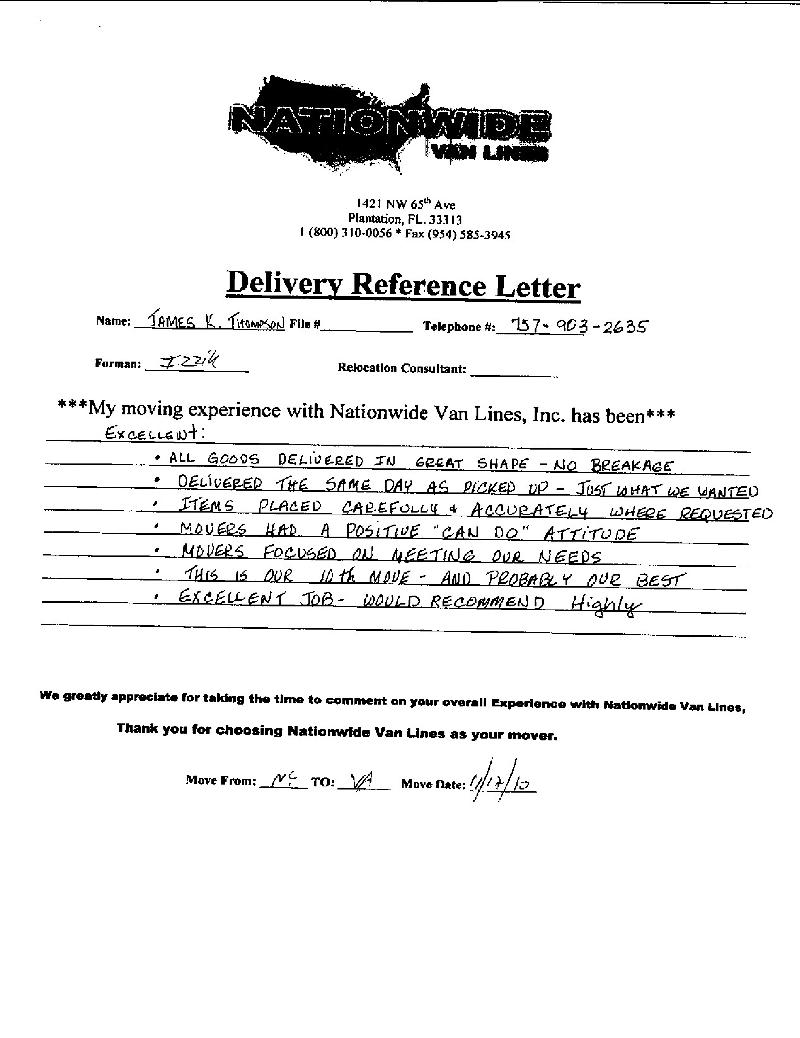 NATIONWIDE
VAN LINES
1421 NW 65th Ave
Plantation, FL. 33313
1 (800) 310-0056 * Fax (954) 585-3945
Delivery Reference Letter
Name: JAMES K. THOMPSON File # Telephone #: 757-903-2635
Forman: IZZIK Relocation Consultant:
***My moving experience with Nationwide Van Lines, Inc. has been***
EXCELLENT:
• ALL GOODS DELIVERED IN GREAT SHAPE - NO BREAKAGE
• DELIVERED THE SAME DAY AS PICKED UP - JUST WHAT WE WANTED
• ITEMS PLACED CAREFULLY & ACCURATELY WHERE REQUESTED
• MOVERS HAD A POSITIVE "CAN DO" ATTITUDE
• MOVERS FOCUSED ON MEETING OUR NEEDS
• THIS IS OUR 10th MOVE - AND PROBABLY OUR BEST
• EXCELLENT JOB - WOULD RECOMMEND Highly
We greatly appreciate for taking the time to comment on your overall Experience with Nationwide Van Lines,
Thank you for choosing Nationwide Van Lines as your mover.
Move From: NC TO: VA Move Date: 11/17/10